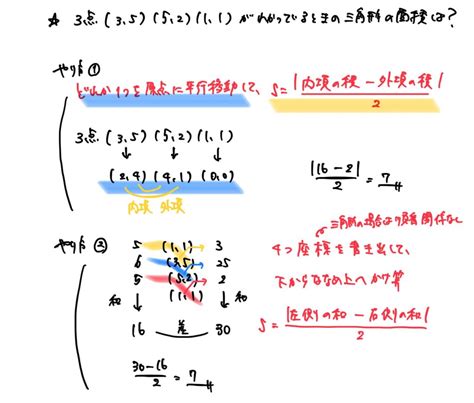 ☆ 3点(3,5)(5,2)(1,1)がわかっているときの三角形の面積は?
やり方①
どれか1つを原点に平行移動して、 S=|内項の積-外項の積|/2
3点(3,5)(5,2)(1,1)
↓ ↓ ↓
(2,4)(4,1)(0,0)
内項 外項
|16-2|/2=7
やり方②
三角形の場合は順番関係なし
4つ座標を書き出して、
下からななめ上へかけ算
5 (1,1) 3
6 (3,5) 25
5 (5,2) 2
(1,1)
和 ↓ ↓ 和
16 差 30
S=|左側の和-右側の和|/2
30-16/2=7